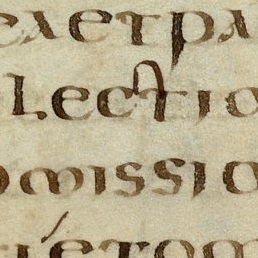 eaetpa
lectio
omissio
ietom